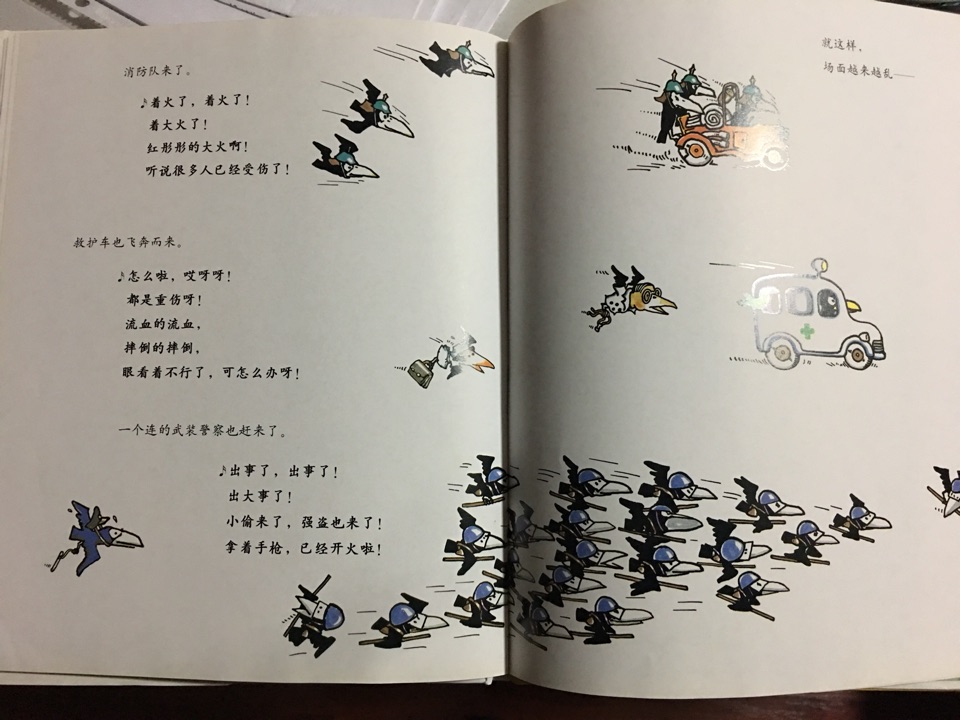 消防队来了。
♪着火了，着火了！
着大火了！
红彤彤的大火啊！
听说很多人已经受伤了！
救护车也飞奔而来。
♪怎么啦，哎呀呀！
都是重伤呀！
流血的流血，
摔倒的摔倒，
眼看着不行了，可怎么办呀！
一个连的武装警察也赶来了。
♪出事了，出事了！
出大事了！
小偷来了，强盗也来了！
拿着手枪，已经开火啦！
就这样，
场面越来越乱——